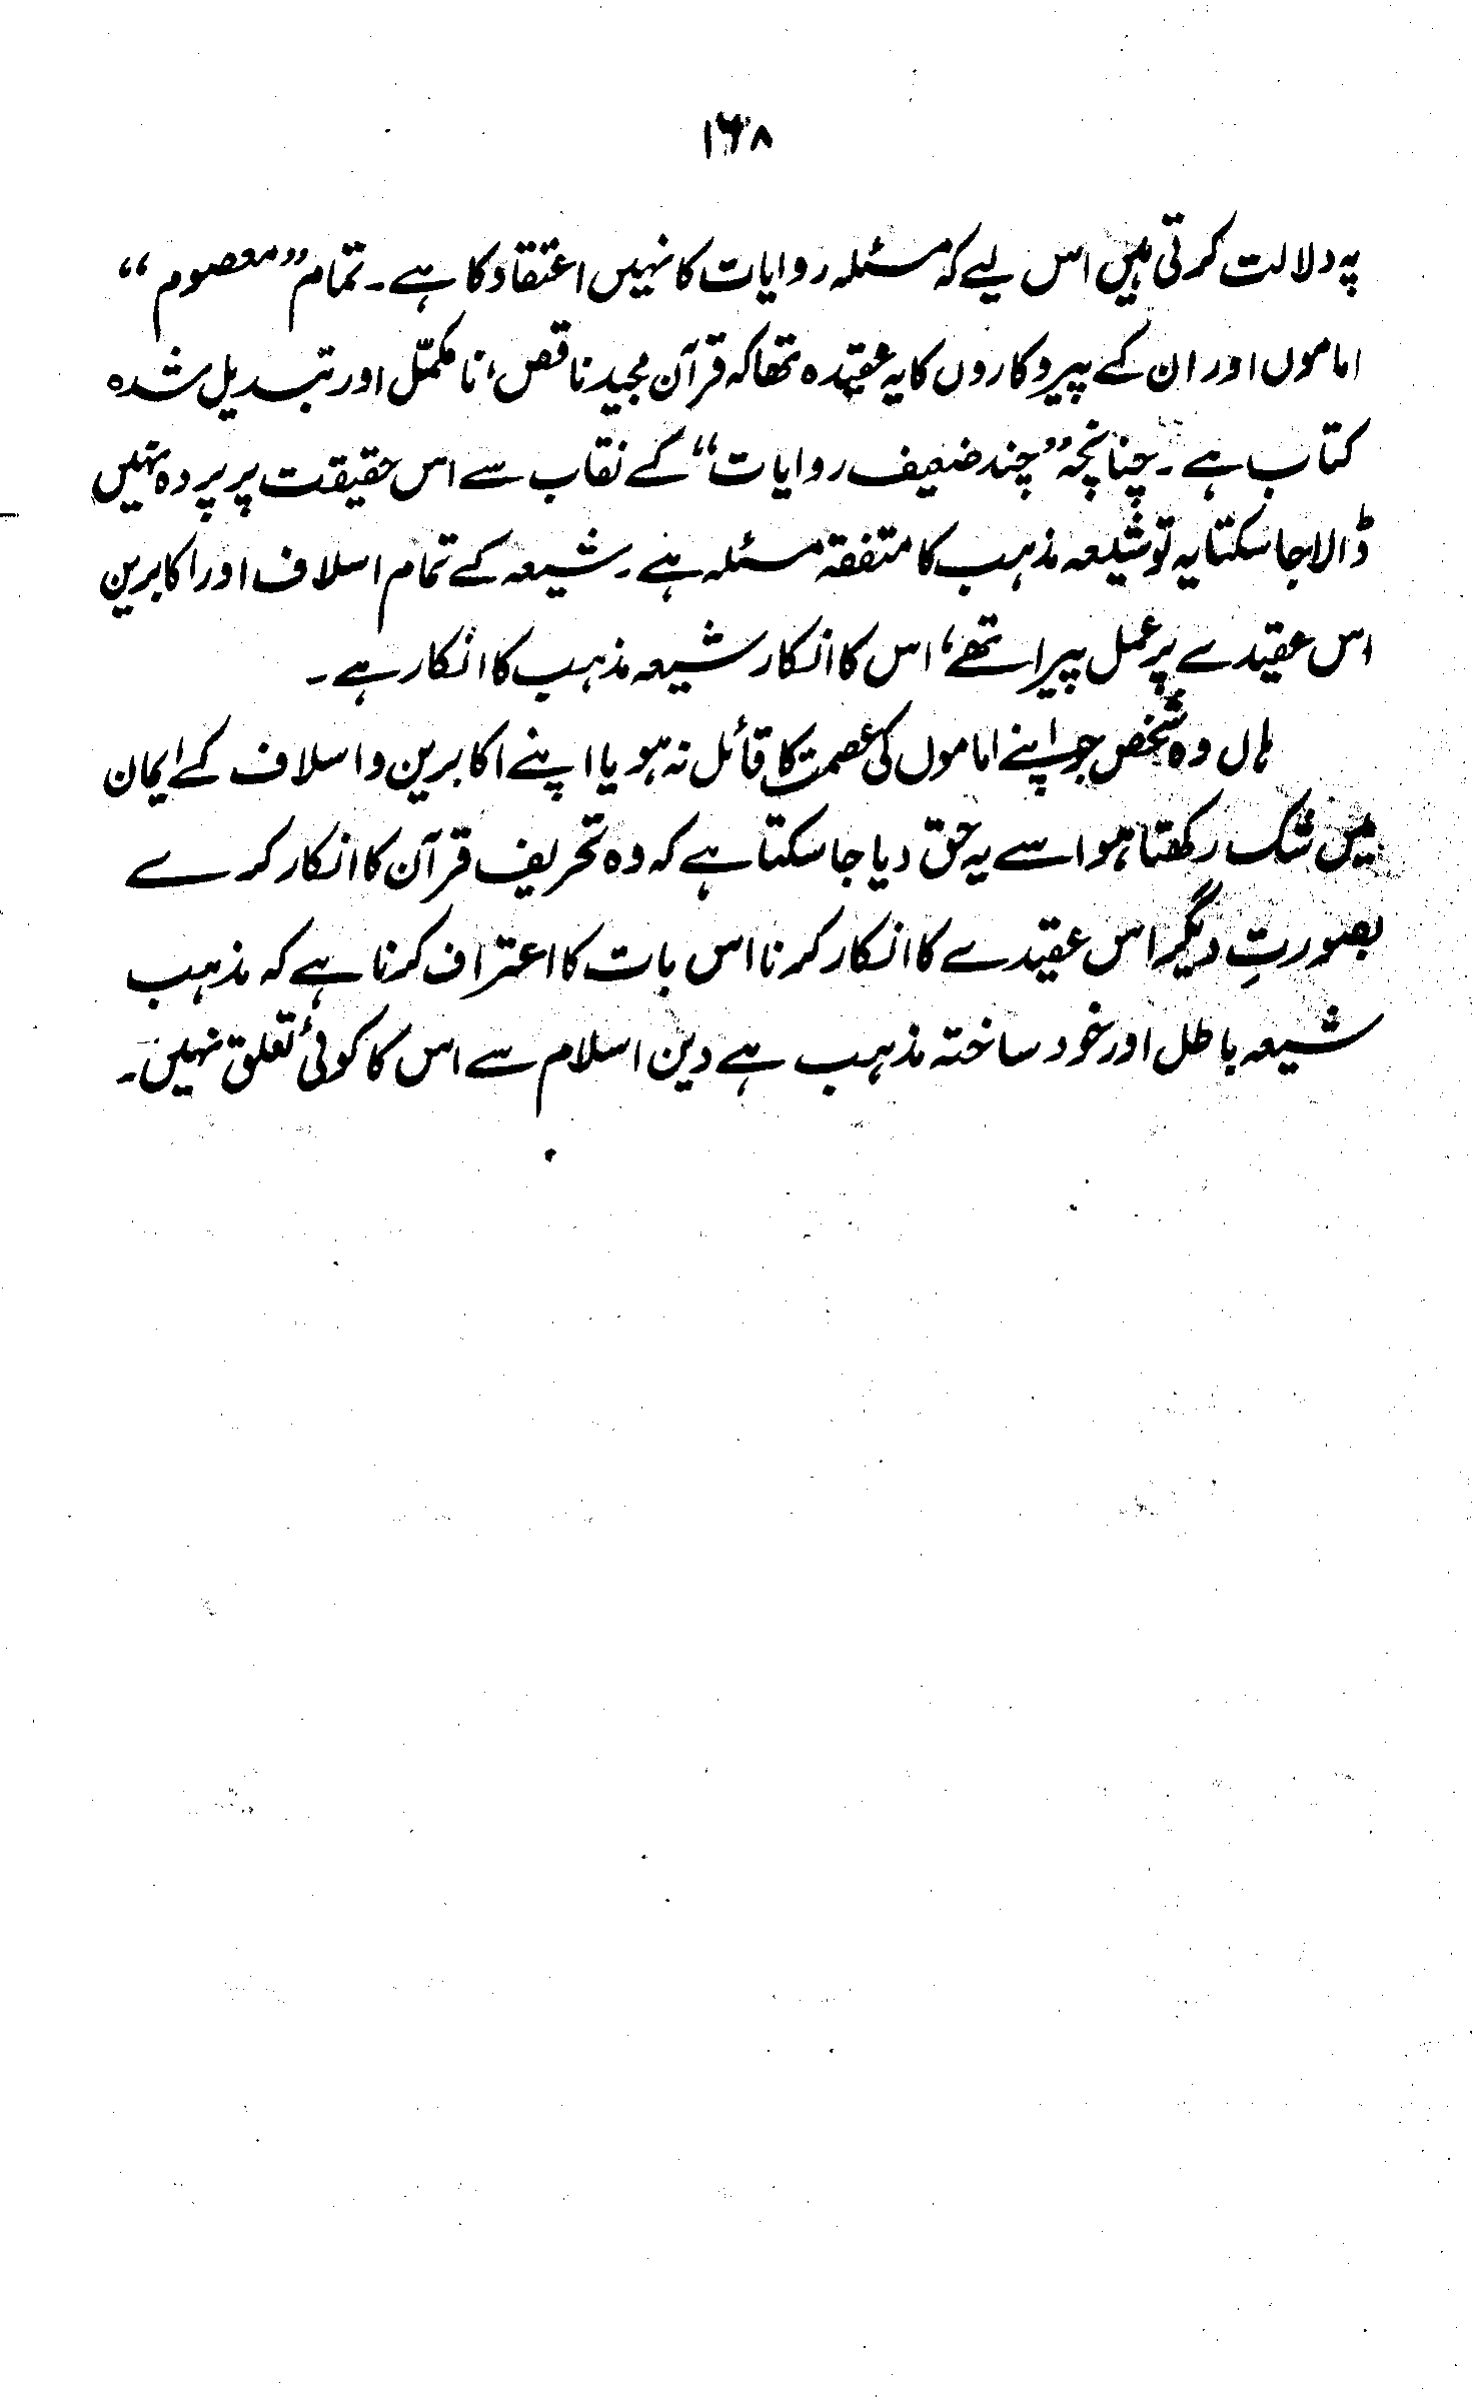 ۱۶۸
پہ دلالت کرتی ہیں اس لیے کہ مسئلہ روایات کا نہیں اعتقاد کا ہے۔ تمام ”معصوم“
اماموں اور ان کے پیروکاروں کا یہ عقیدہ تھا کہ قرآن مجید ناقص، نامکمّل اور تبدیل شدہ
کتاب ہے۔ چنانچہ ”چند ضعیف روایات“ کے نقاب سے اس حقیقت پر پردہ نہیں
ڈالا جا سکتا یہ تو شیعہ مذہب کا متفقہ مسئلہ ہے۔ شیعہ کے تمام اسلاف اور اکابرین
اس عقیدے پر عمل پیرا تھے، اس کا انکار شیعہ مذہب کا انکار ہے۔
ہاں وہ شخص جو اپنے اماموں کی عصمت کا قائل نہ ہو یا اپنے اکابرین و اسلاف کے ایمان
میں شک رکھتا ہو اسے یہ حق دیا جا سکتا ہے کہ وہ تحریف قرآن کا انکار کرے
بصورتِ دیگر اس عقیدے کا انکار کرنا اس بات کا اعتراف کرنا ہے کہ مذہب
شیعہ باطل اور خود ساختہ مذہب ہے دین اسلام سے اس کا کوئی تعلق نہیں۔